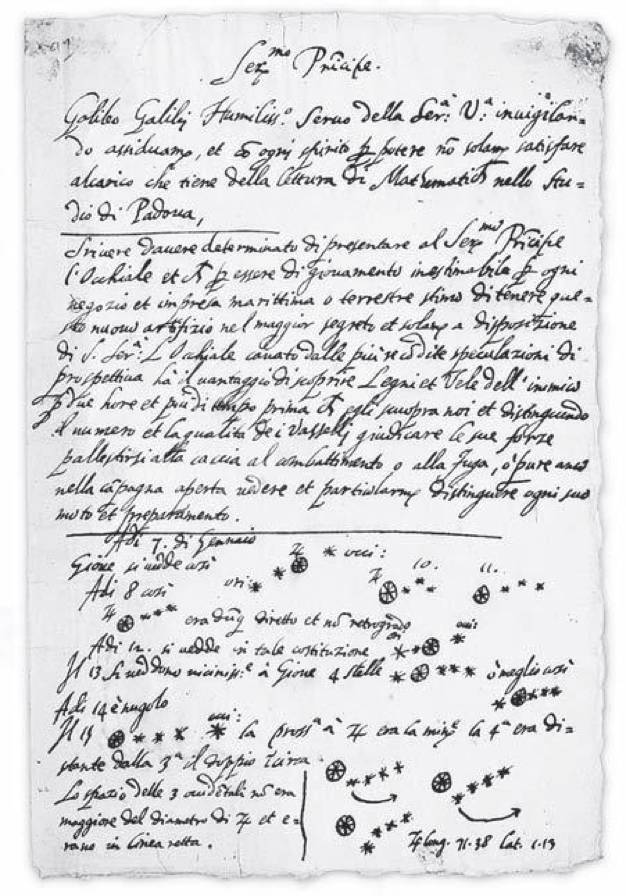 Ser.mo Prĩcipe.
Galileo Galilei Humiliss.o Servo della Ser.a V.a invigilan-
do assiduamte, et cõ ogni spirito ꝑ potere nõ solamte satisfare
alcarico che tiene della lettura di Mathematich nello Stu-
dio di Padova,
Scrivere davere determinato di presentare al Ser.mo Prĩcipe
l'Occhiale et ꝑ essere di giovamento inestimabile ꝑ ogni
negozio et impresa marittima o terrestre stimo di tenere que-
sto nuovo artifizio nel maggior segreto et solamte a disposizione
di S. Ser.a L'Occhiale cavato dalle piu recõdite speculazioni di
prospettiva hà il vantaggio di scoprire Legni et Vele dell'inimico
ꝑ due hore et piu di tempo prima egli scuopra noi et distinguendo
il numero et la qualita de i Vasselli giudicare le sue forze
pallestirsi alla caccia al combattimento o alla fuga, ò pure anco
nella cãpagna aperta vedere et particularmte distinguere ogni suo
moto et preparamento.
Adi 7. di Gennaio
Gioue si vedde cosi ♃ occi:
Adi 8 cosi ori: ♃ 10. 11.
♃ era dũq diretto et nõ retrogrado
Adi 12. si vedde in tale costituzione ori occi:
Il 13 si veddono viciniss.e à Gioue 4 stelle ò meglio cosi
Adi 14 è nugolo
Il 15 occi: la pross.a à ♃ era la min.e la 4.a era di-
stante dalla 3.a il doppio ĩ circa
Lo spazio delle 3 occidẽtali nõ era
maggiore del diametro di ♃ et e-
rano in linea retta.
♃ long. 71.38 Lat. 1.13